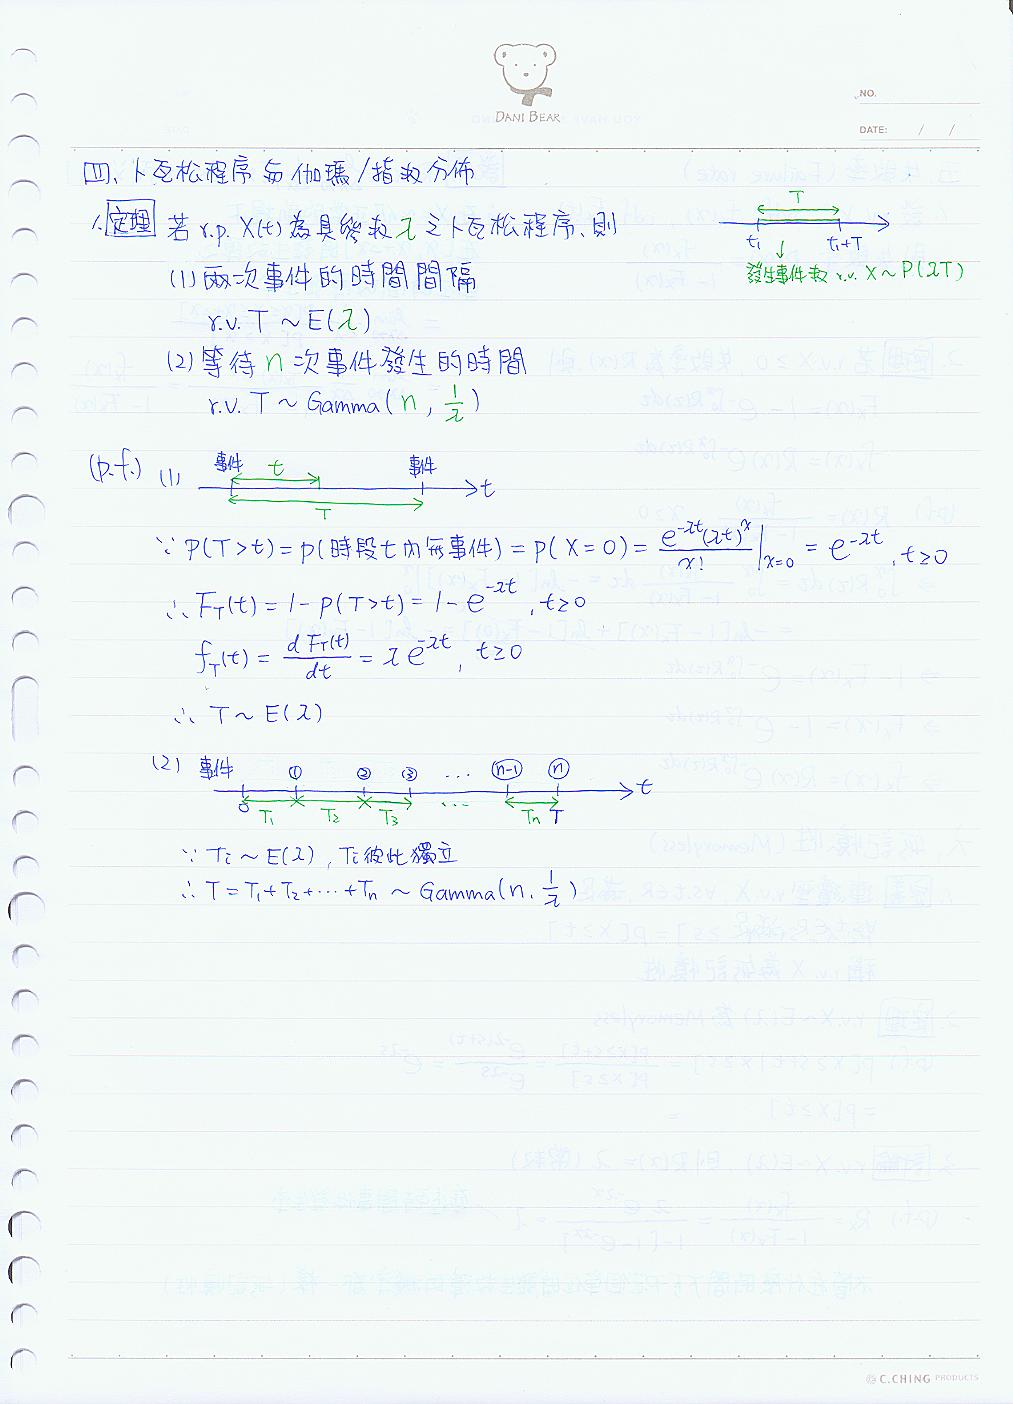 DANI BEAR
NO.
DATE: / /
四、卜瓦松程序与伽瑪/指数分佈
1. 定理 若 r.p. X(t) 為具參数 λ 之卜瓦松程序、則
(1) 兩次事件的時間間隔
r.v. T ~ E(λ)
(2) 等待 n 次事件發生的時間
r.v. T ~ Gamma(n, 1/λ)
T
t₁ t₁+T
發生事件数 r.v. X ~ P(λT)
(p.f.) (1) 事件 t 事件
T t
∵ P(T>t) = P(時段 t 內無事件) = P(X=0) = e^{-λt}(λt)^x / x! |_{x=0} = e^{-λt}, t≥0
∴ F_T(t) = 1 - P(T>t) = 1 - e^{-λt}, t≥0
f_T(t) = d F_T(t) / dt = λ e^{-λt}, t≥0
∴ T ~ E(λ)
(2) 事件 ① ② ③ ... (n-1) (n)
0 T₁ T₂ T₃ ... Tn T t
∵ Ti ~ E(λ), Ti 彼此獨立
∴ T = T₁+T₂+⋯+Tn ~ Gamma(n, 1/λ)
© C.CHING PRODUCTS